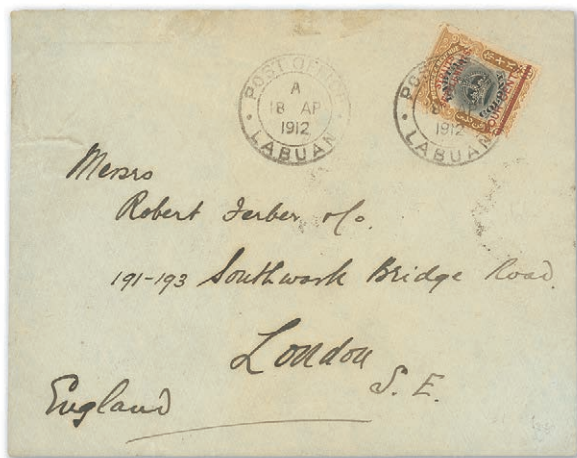 POST OFFICE
A
18 AP
1912
LABUAN
PO
1912
LABUAN
Messrs
Robert Ferber & Co.
191-193 Southwark Bridge Road
London
S. E.
England